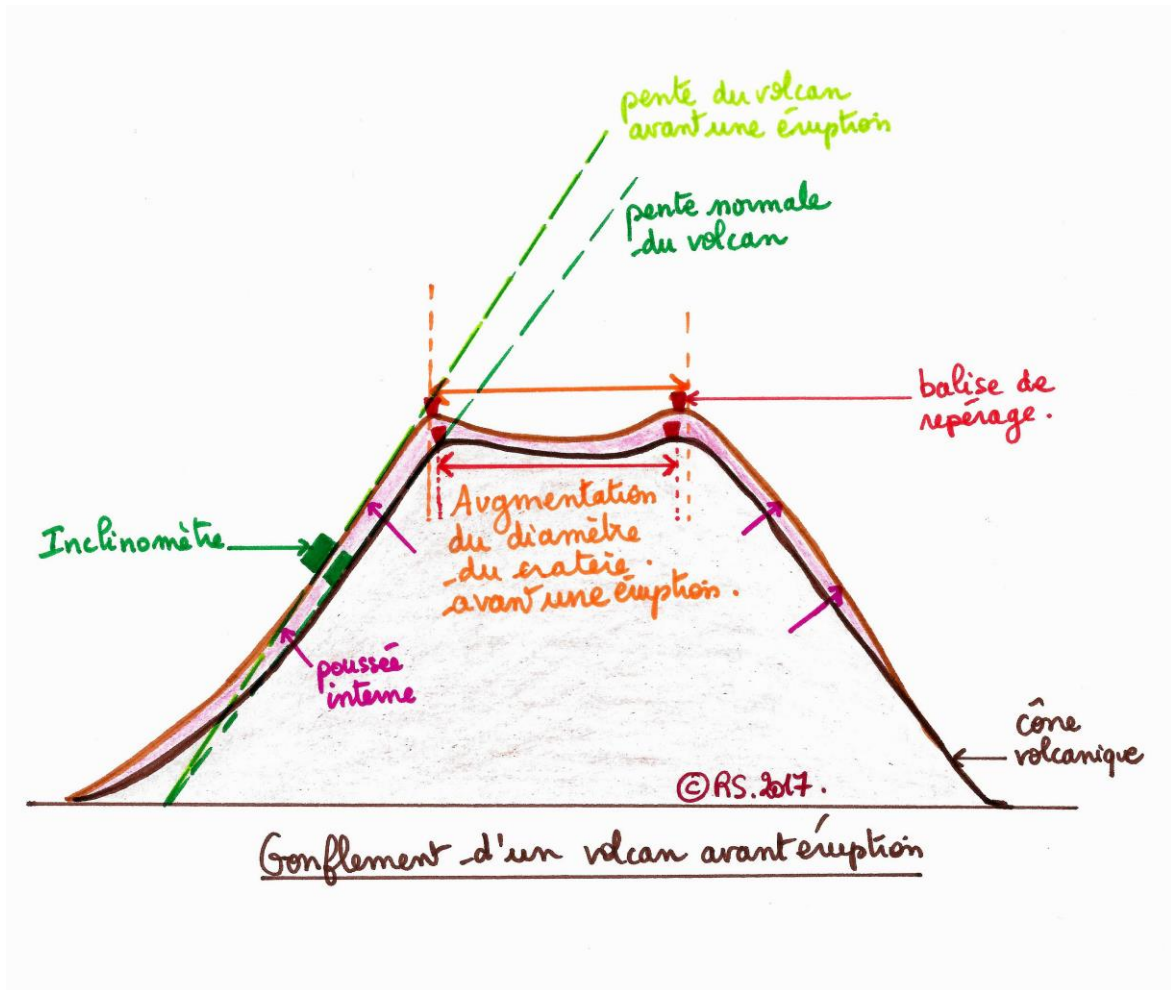 pente du volcan
avant une éruption
pente normale
du volcan
balise de
repérage.
Inclinomètre
Augmentation
du diamètre
du cratère.
avant une éruption.
poussée
interne
cône
volcanique
©RS.2017.
Gonflement d'un volcan avant éruption